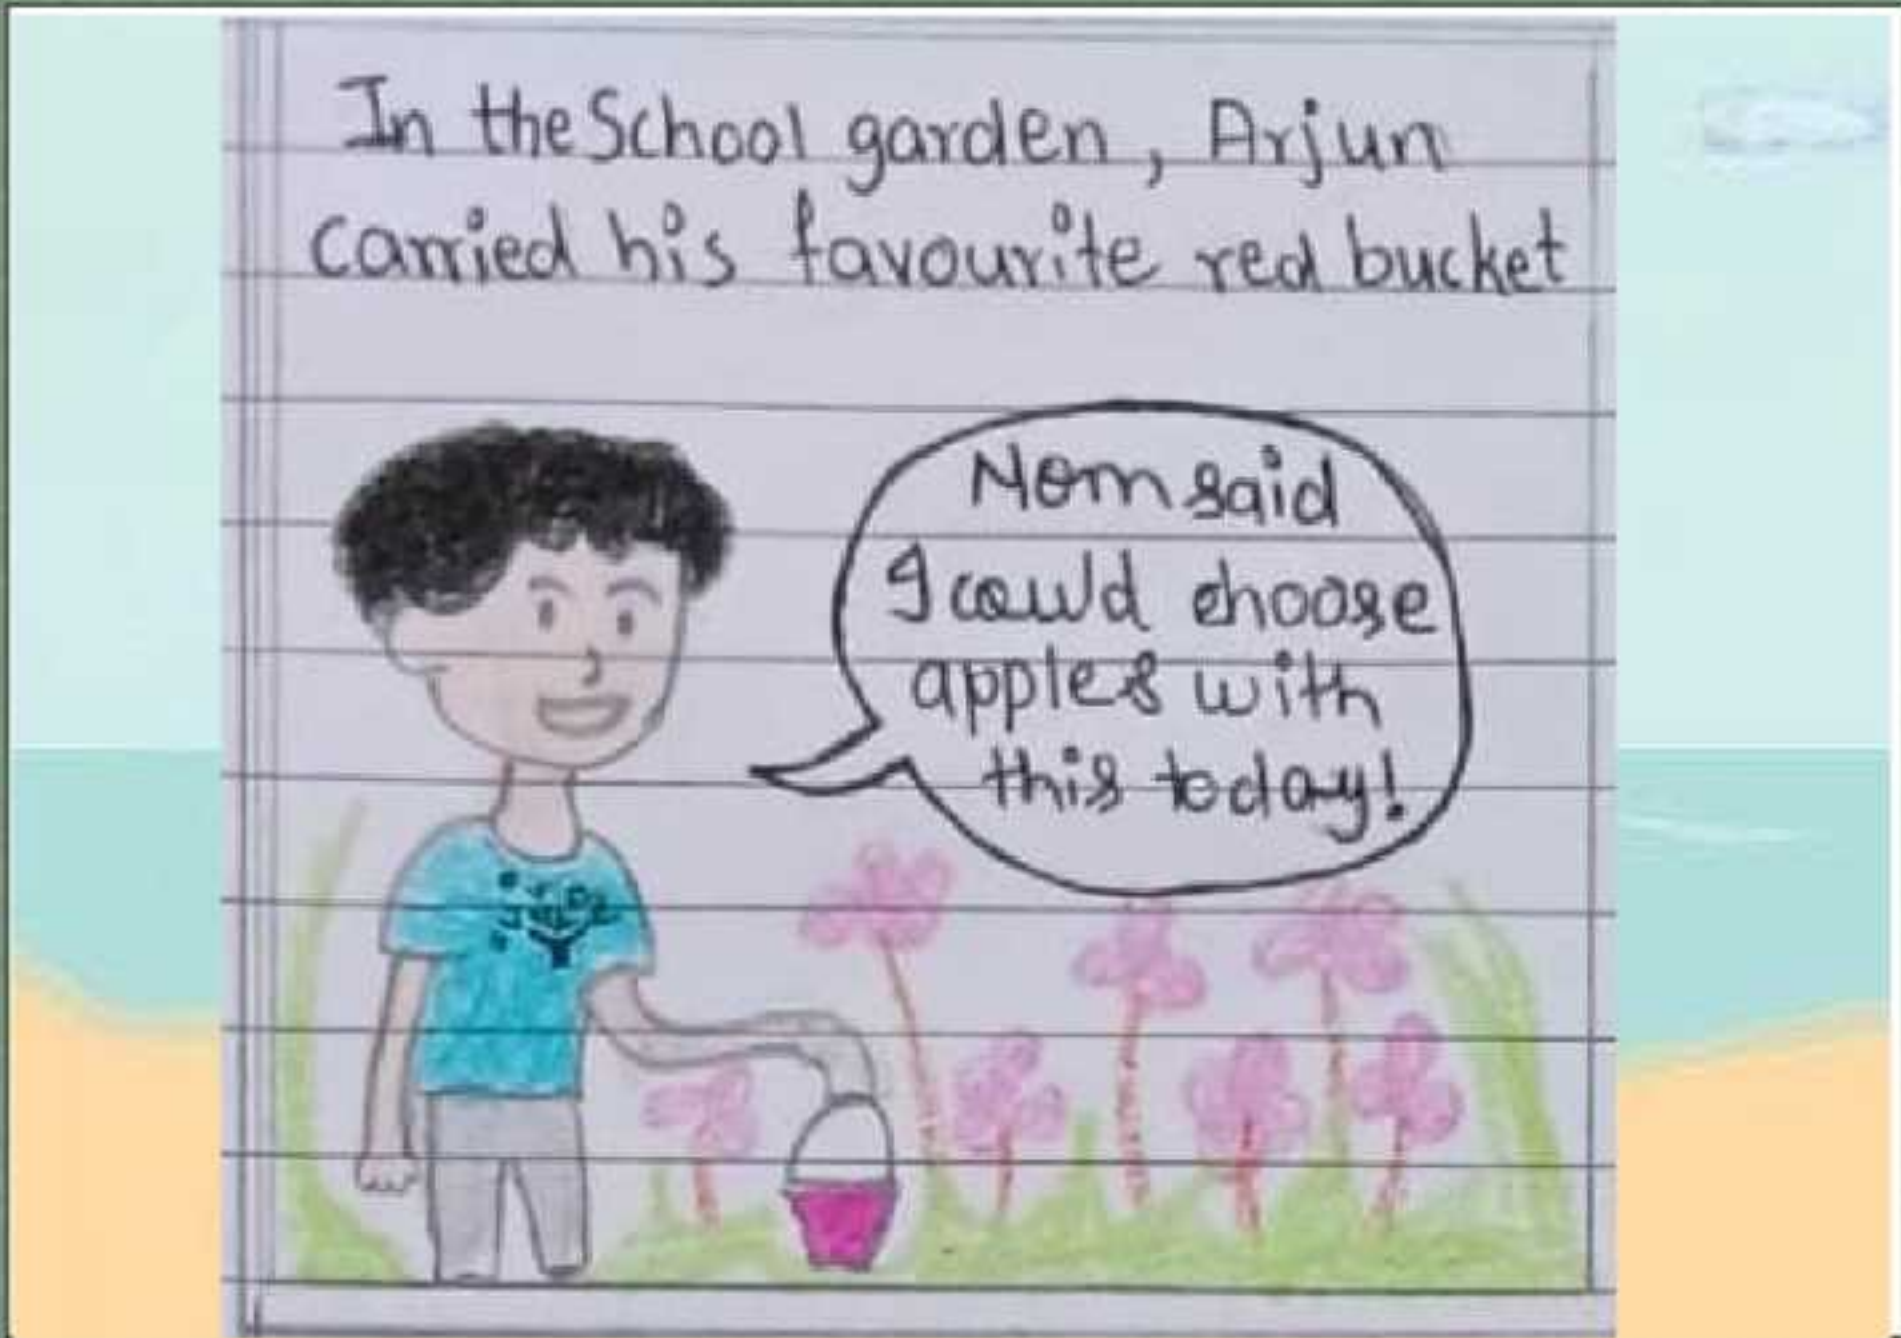 In the School garden, Arjun
carried his favourite red bucket
Mom said
I could choose
apples with
this today!